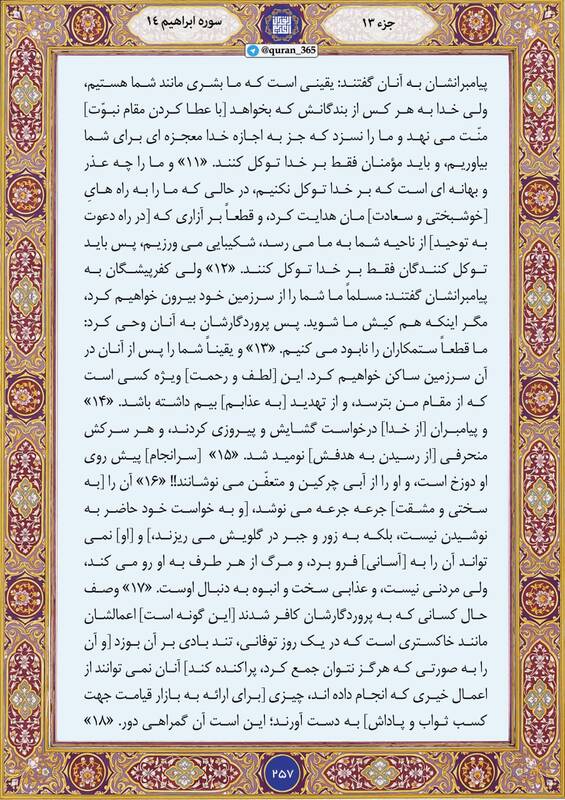 جزء ۱۳
سوره ابراهیم ۱۴
@quran_365
پیامبرانشان به آنان گفتند: یقینی است که ما بشری مانند شما هستیم،
ولی خدا به هر کس از بندگانش که بخواهد [با عطا کردن مقام نبوّت]
منّت می نهد و ما را نسزد که جز به اجازه خدا معجزه ای برای شما
بیاوریم، و باید مؤمنان فقط بر خدا توکل کنند. «۱۱» و ما را چه عذر
و بهانه ای است که بر خدا توکل نکنیم، در حالی که ما را به راه هایِ
[خوشبختی و سعادت] مان هدایت کرد، و قطعاً بر آزاری که [در راه دعوت
به توحید] از ناحیه شما به ما می رسد، شکیبایی می ورزیم، پس باید
توکل کنندگان فقط بر خدا توکل کنند. «۱۲» ولی کفرپیشگان به
پیامبرانشان گفتند: مسلماً ما شما را از سرزمین خود بیرون خواهیم کرد،
مگر اینکه هم کیش ما شوید. پس پروردگارشان به آنان وحی کرد:
ما قطعاً ستمکاران را نابود می کنیم. «۱۳» و یقیناً شما را پس از آنان در
آن سرزمین ساکن خواهیم کرد. این [لطف و رحمت] ویژه کسی است
که از مقام من بترسد، و از تهدید [به عذابم] بیم داشته باشد. «۱۴»
و پیامبران [از خدا] درخواست گشایش و پیروزی کردند، و هر سرکش
منحرفی [از رسیدن به هدفش] نومید شد. «۱۵» [سرانجام] پیش روی
او دوزخ است، و او را از آبی چرکین و متعفّن می نوشانند!! «۱۶» آن را [به
سختی و مشقت] جرعه جرعه می نوشد، [و به خواست خود حاضر به
نوشیدن نیست، بلکه به زور و جبر در گلویش می ریزند،] و [او] نمی
تواند آن را به [آسانی] فرو برد، و مرگ از هر طرف به او رو می کند،
ولی مردنی نیست، و عذابی سخت و انبوه به دنبال اوست. «۱۷» وصف
حال کسانی که به پروردگارشان کافر شدند [این گونه است] اعمالشان
مانند خاکستری است که در یک روز توفانی، تند بادی بر آن بوزد [و آن
را به صورتی که هرگز نتوان جمع کرد، پراکنده کند] آنان نمی توانند از
اعمال خیری که انجام داده اند، چیزی [برای ارائه به بازار قیامت جهت
کسب ثواب و پاداش] به دست آورند؛ این است آن گمراهی دور. «۱۸»
۲۵۷